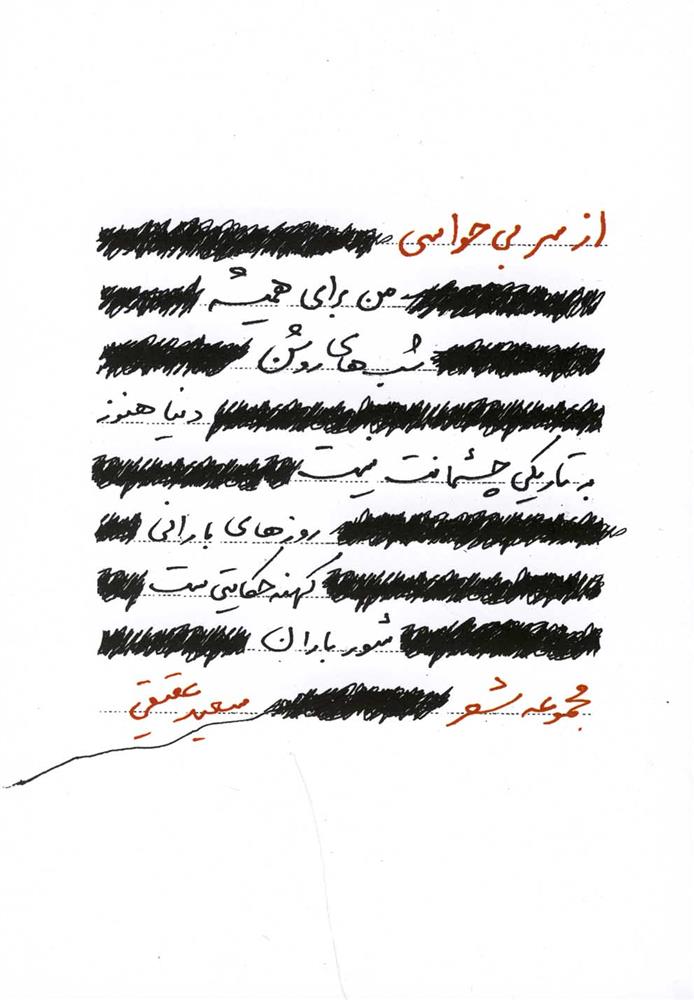 از سر بی حواسی
من برای همیشه
شب‌های روشن
دنیا هنوز
به تاریکی چشمانت نیست
روزهای بارانی
کهنه حکایتی ست
شور باران
مجموعه شعر سعید عقیقی